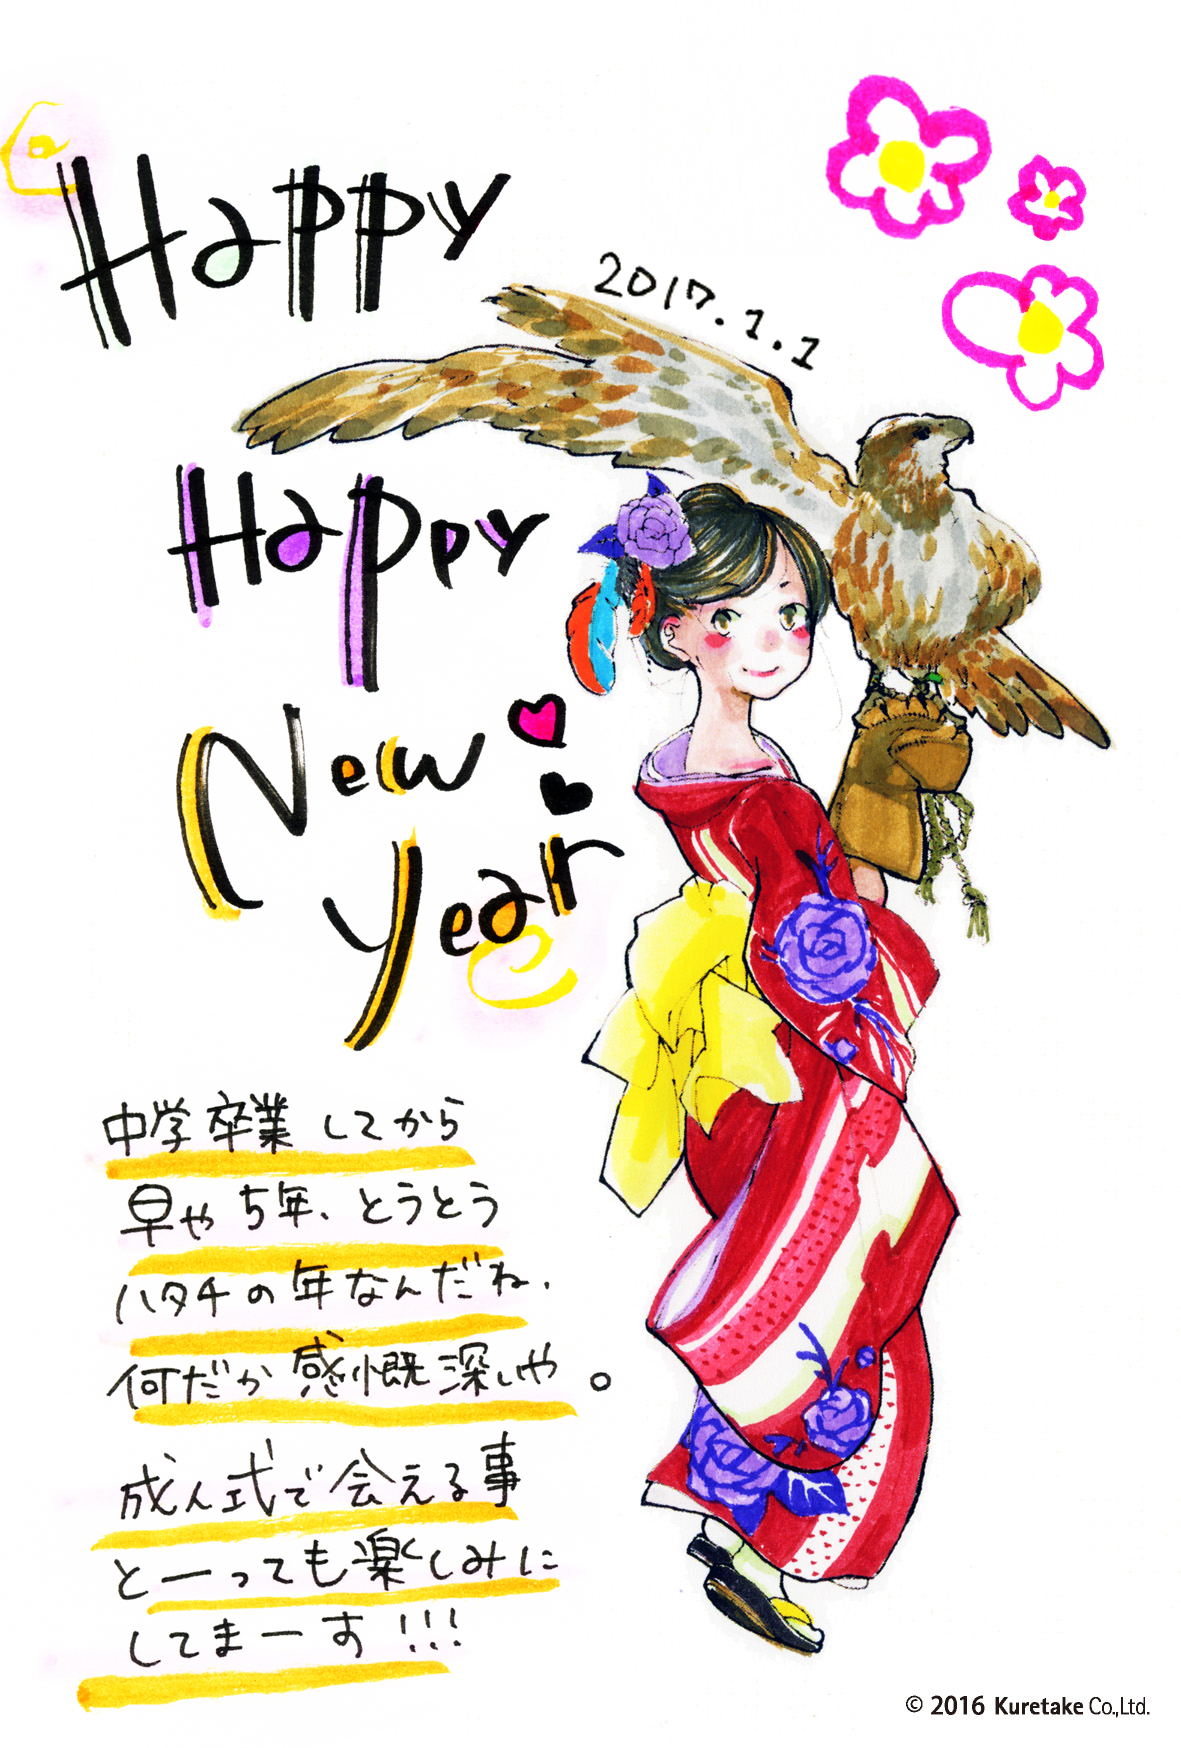 Happy
2017.1.1
Happy
New
Year
中学卒業してから
早や5年、とうとう
ハタチの年なんだね、
何だか感慨深いや。
成人式で会える事
とーっても楽しみに
してまーす!!!
© 2016 Kuretake Co.,Ltd.